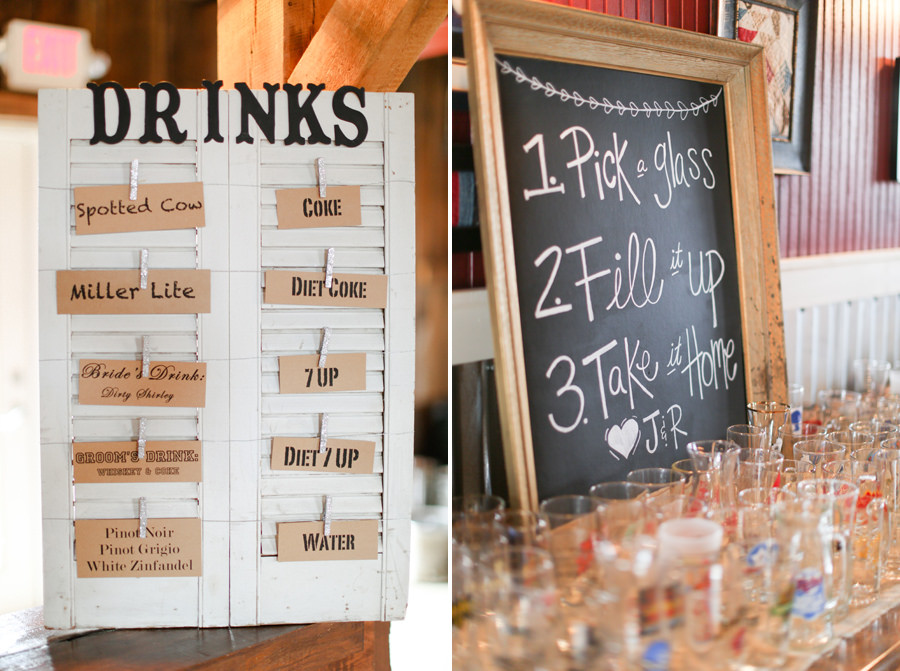 EXIT
DRINKS
Spotted Cow
Miller Lite
Bride's Drink:
Dirty Shirley
GROOM'S DRINK:
WHISKEY & COKE
Pinot Noir
Pinot Grigio
White Zinfandel
COKE
DIET COKE
7 UP
DIET 7 UP
WATER
1. Pick a glass
2. Fill it up
3. Take it Home
J & R